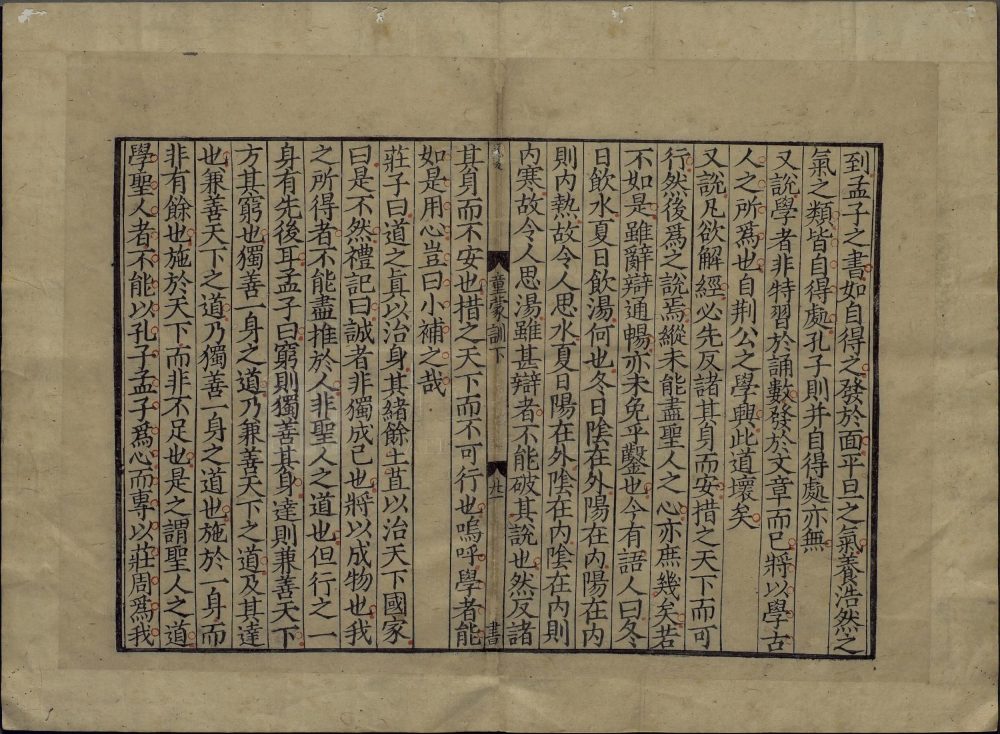 到孟子之書如自得之發於面平旦之氣養浩然之
氣之類皆自得處孔子則并自得處亦無
又說學者非特習於誦數發於文章而已將以學古
人之所爲也自荆公之學興此道壞矣
又說凡欲解經必先反諸其身而安措之天下而可
行然後爲之說焉縱未能盡聖人之心亦庶幾矣若
不如是雖辭辯通暢亦未免乎鑿也今有語人曰冬
日飲水夏日飲湯何也冬日陰在外陽在内陽在内
則内熱故令人思水夏日陽在外陰在内陰在内則
内寒故令人思湯雖甚辯者不能破其說也然反諸
童蒙訓下
廿一
書
其身而不安也措之天下而不可行也嗚呼學者能
如是用心豈曰小補之哉
莊子曰道之眞以治身其緒餘土苴以治天下國家
曰是不然禮記曰誠者非獨成己也將以成物也我
之所得者不能盡推於人非聖人之道也但行之一
身有先後耳孟子曰窮則獨善其身達則兼善天下
方其窮也獨善一身之道乃兼善天下之道及其達
也兼善天下之道乃獨善一身之道也施於一身而
非有餘也施於天下而非不足也是之謂聖人之道
學聖人者不能以孔子孟子爲心而專以莊周爲我